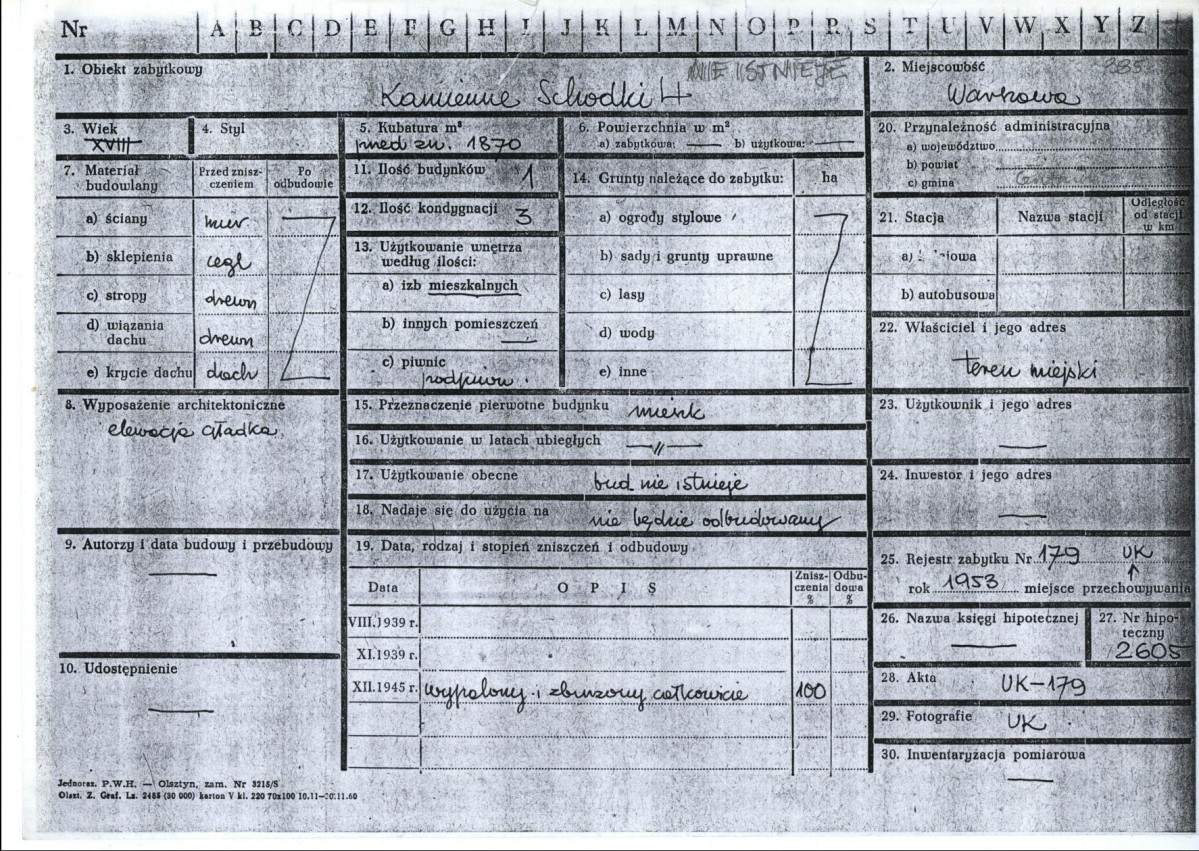 Nr A B C D E F G H I J K L M N O P R S T U V W X Y Z
1. Obiekt zabytkowy
NIE ISTNIEJE
Kamienne Schodki 4
2. Miejscowość
Warszawa
3. Wiek
XVIII
4. Styl
5. Kubatura m³
przed zn. 1870
6. Powierzchnia w m²
a) zabytkowa: — b) użytkowa: —
20. Przynależność administracyjna
a) województwo
b) powiat
c) gmina
7. Materiał budowlany
Przed zniszczeniem
Po odbudowie
a) ściany mur
b) sklepienia cegl
c) stropy drewn
d) wiązania dachu drewn
e) krycie dachu dach
11. Ilość budynków 1
12. Ilość kondygnacji 3
13. Użytkowanie wnętrza według ilości:
a) izb mieszkalnych
b) innych pomieszczeń —
c) piwnic
14. Grunty należące do zabytku: ha
a) ogrody stylowe
b) sady i grunty uprawne
c) lasy
d) wody
e) inne
21. Stacja
Nazwa stacji
Odległość od stacji w km
b) autobusowa
22. Właściciel i jego adres
teren miejski
8. Wyposażenie architektoniczne
elewacja gładka
15. Przeznaczenie pierwotne budynku mieszk
16. Użytkowanie w latach ubiegłych —〃—
17. Użytkowanie obecne bud nie istnieje
18. Nadaje się do użycia na nie będzie odbudowany
23. Użytkownik i jego adres
—
24. Inwestor i jego adres
—
9. Autorzy i data budowy i przebudowy
—
19. Data, rodzaj i stopień zniszczeń i odbudowy
Data OPIS Zniszczenia % Odbudowa %
VIII.1939 r.
XI.1939 r.
XII.1945 r. wypalony i zburzony całkowicie 100
25. Rejestr zabytku Nr 179 UK
rok 1953 miejsce przechowywania
26. Nazwa księgi hipotecznej
—
27. Nr hipoteczny
2605
10. Udostępnienie
—
28. Akta UK-179
29. Fotografie UK
30. Inwentaryzacja pomiarowa
—
Jednoraz. P.W.H. — Olsztyn, zam. Nr 3215/S